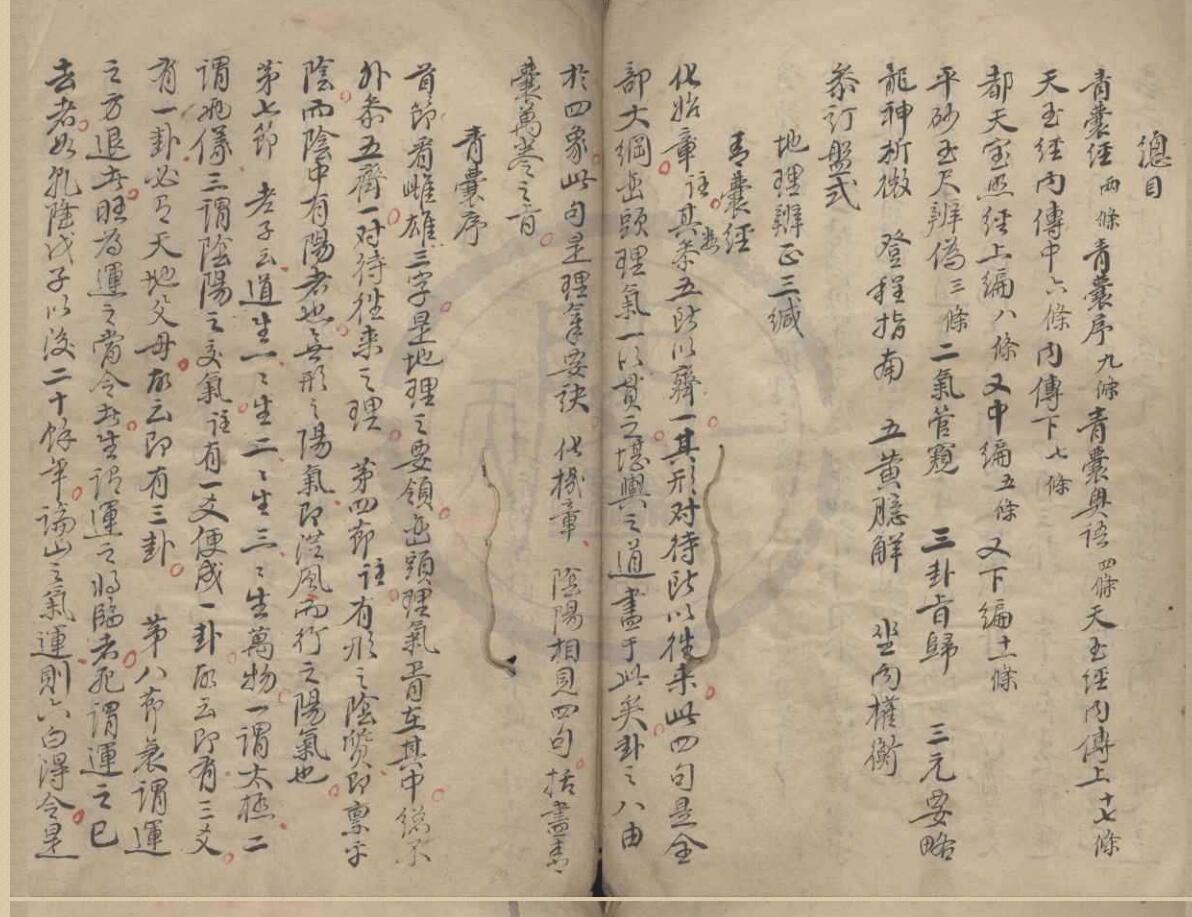 總目
青囊經兩條青囊序九條青囊奧語四條天玉經內傳上十七條
天玉經內傳中六條內傳下七條
都天宝照經上編八條又中編五條又下編十一條
平砂玉尺辨偽三條二氣管窺 三卦旨歸 三元要略
龍神析微 登程指南 五黃臆解 坐向權衡
叅訂盤式
地理辨正三緘
青囊經
化始章註其叅五所以齊一其形对待所以徃来此四句是全
部大綱巒頭理氣一以貫之堪輿之道盡于此矣卦之八由
於四象此句是理氣要訣 化機章 陰陽相見四句括盡青
囊萬卷之旨
青囊序
首節看雌雄三字是地理之要領巒頭理氣旨在其中總不
外叅五齊一对待徃来之理 第四節註有形之陰質即禀乎
陰而陰中有陽者也無形之陽氣即從風而行之陽氣也
第七節 老子云道生一〻生二〻生三〻生萬物一謂太極二
謂兩儀三謂陰陽之交氣註有一爻便成一卦故云即有三爻
有一卦必有天地父母故云即有三卦 第八節衰謂運
之方退者旺為運之當令者生謂運之將臨者死謂運之已
去者如乾隆戊子以後二十餘年論山之氣運則六白得令是